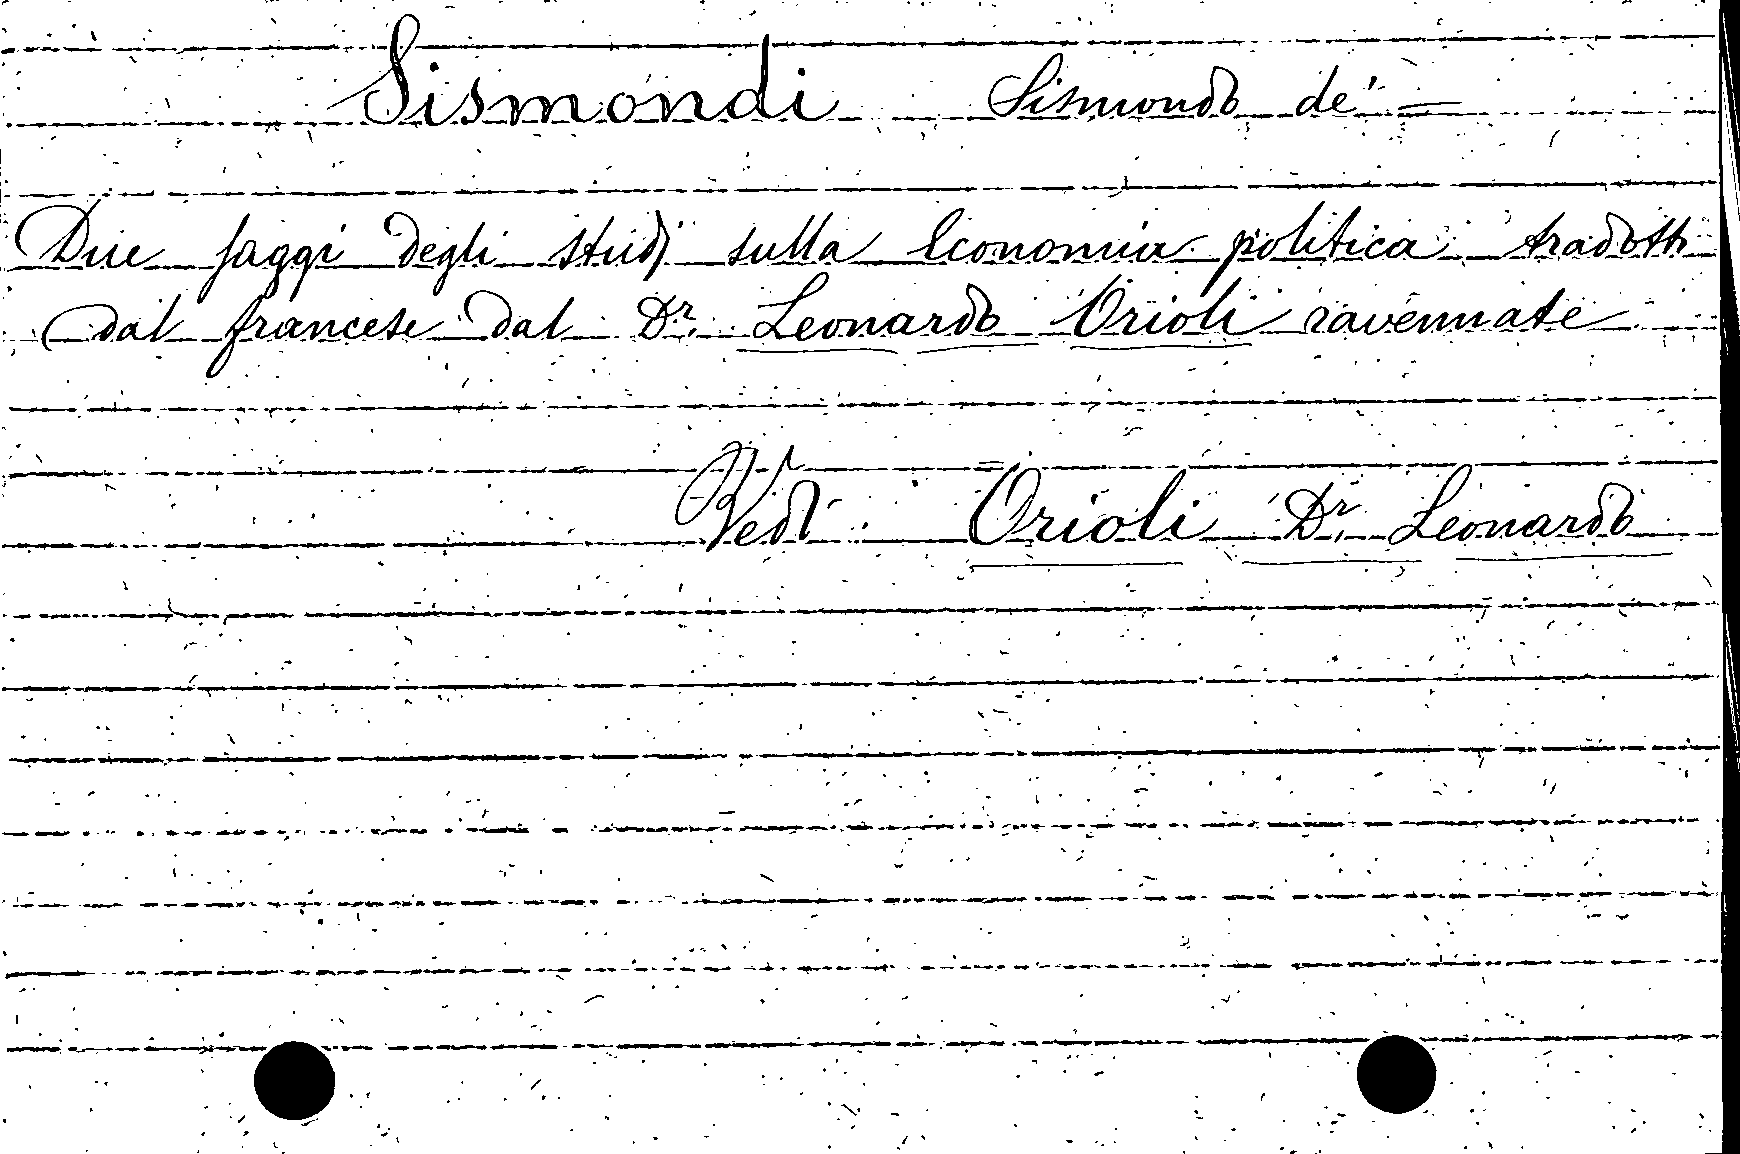 Sismondi Sismondo de' =
Due saggi degli studj sulla Economia politica tradotti
dal francese dal Dr. Leonardo Orioli ravennate
Vedi Orioli Dr. Leonardo